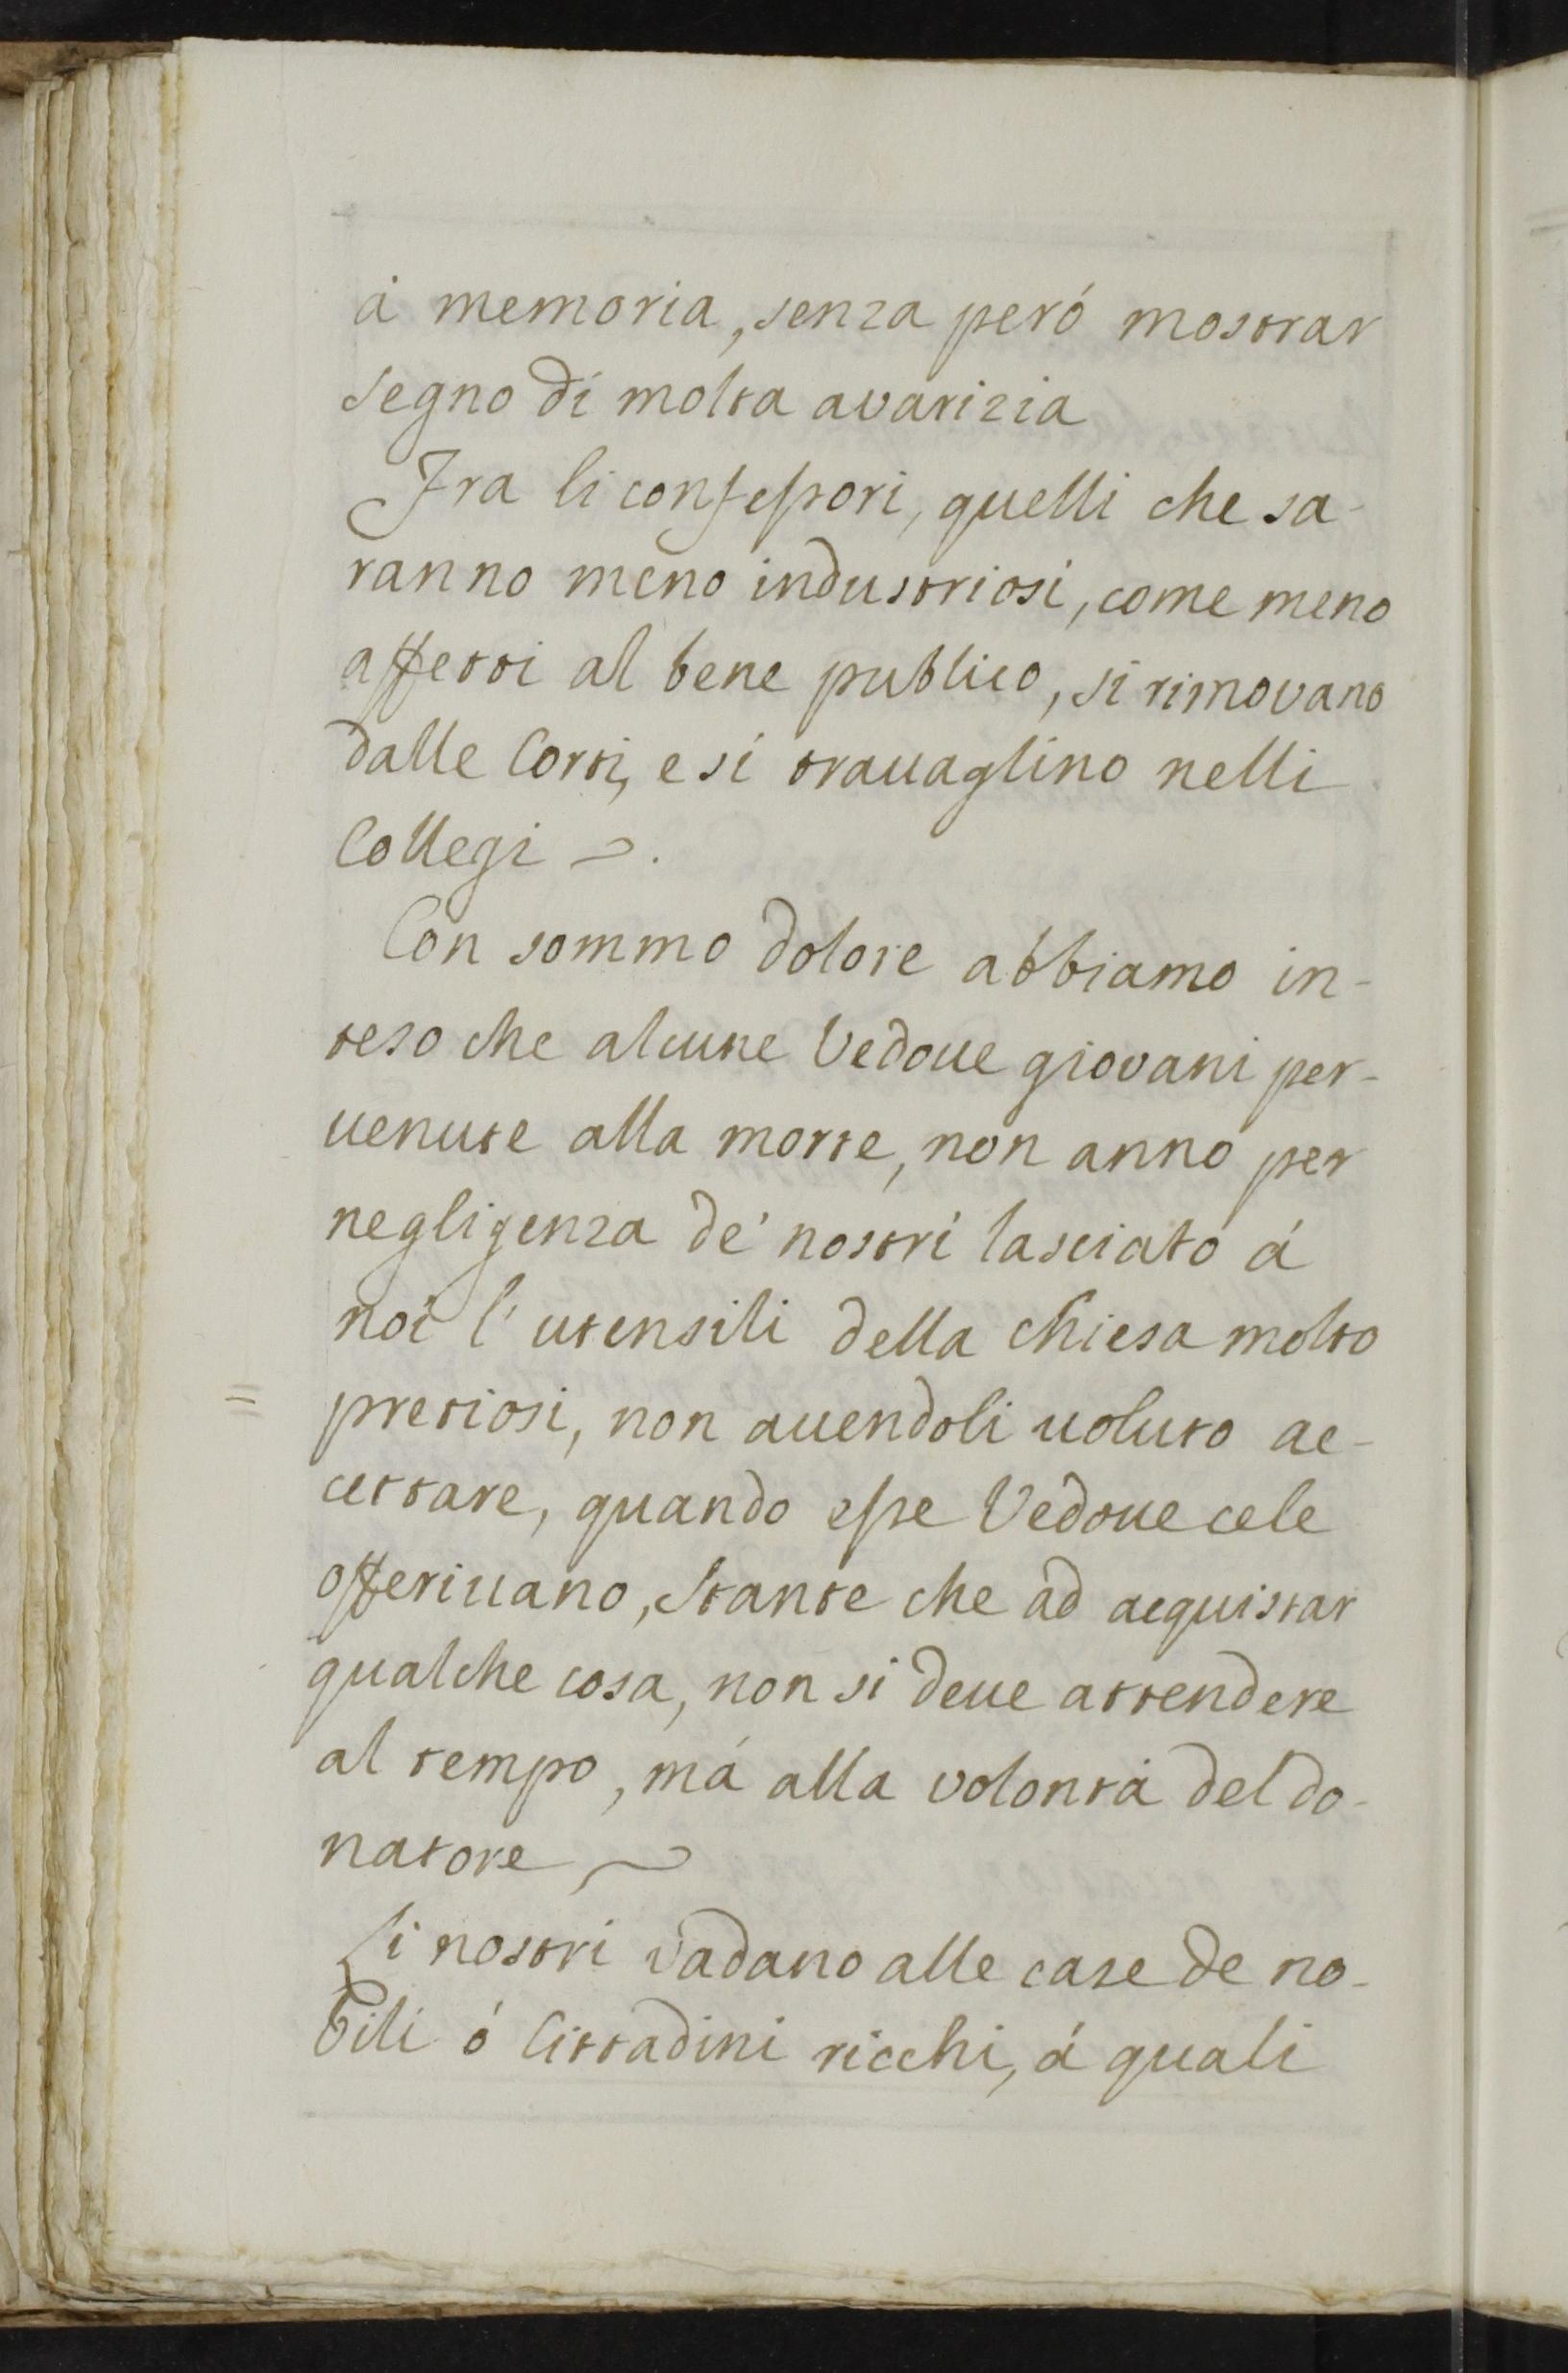 à memoria, senza peró mostrar
segno di molta avarizia
Fra li confessori, quelli che sa-
ranno meno industriosi, come meno
affetti al bene publico, si rimovano
dalle Corti, e si trauaglino nelli
Collegi ~.
Con sommo dolore abbiamo in-
teso che alcune Vedoue giovani per-
uenute alla morte, non anno per
negligenza de' nostri lasciato á
noi l'utensili della Chiesa molto
= pretiosi, non auendoli uoluto ac-
cettare, quando esse Vedoue cele
offeriuano, Stante che ad acquistar
qualche cosa, non si deue attendere
al tempo, má alla volontà del do-
natore ~
Li nostri vadano alle case de no-
bili ó Cittadini ricchi, á quali